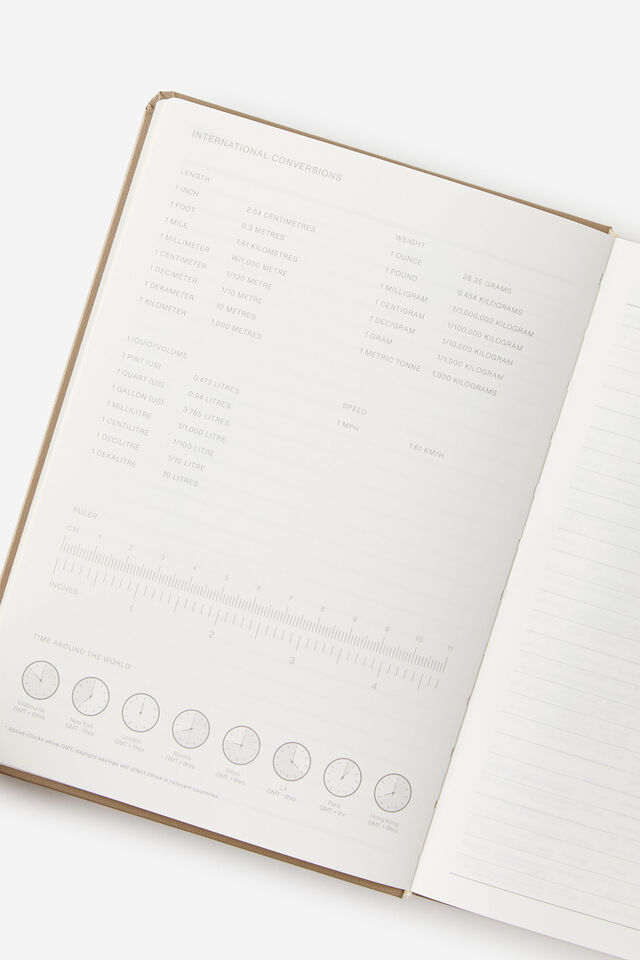 INTERNATIONAL CONVERSIONS
LENGTH
1 INCH 2.54 CENTIMETRES
1 FOOT 0.3 METRES
1 MILE 1.61 KILOMETRES
1 MILLIMETER W/1,000 METRE
1 CENTIMETER 1/100 METRE
1 DECIMETER 1/10 METRE
1 DEKAMETER 10 METRES
1 KILOMETER 1,000 METRES
WEIGHT
1 OUNCE 28.35 GRAMS
1 POUND 0.454 KILOGRAMS
1 MILLIGRAM 1/1,000,000 KILOGRAM
1 CENTIGRAM 1/100,000 KILOGRAM
1 DECIGRAM 1/10,000 KILOGRAM
1 GRAM 1/1,000 KILOGRAM
1 METRIC TONNE 1,000 KILOGRAMS
LIQUID/VOLUME
1 PINT (US) 0.473 LITRES
1 QUART (US) 0.94 LITRES
1 GALLON (US) 3.785 LITRES
1 MILLILITRE 1/1,000 LITRE
1 CENTILITRE 1/100 LITRE
1 DECILITRE 1/10 LITRE
1 DEKALITRE 10 LITRES
SPEED
1 MPH 1.61 KM/H
RULER
CM 1 2 3 4 5 6 7 8 9 10 11
INCHES 1 2 3 4
TIME AROUND THE WORLD
Melbourne
GMT + 10hrs
New York
GMT - 5hrs
London
GMT + 0hrs
Manila
GMT + 8hrs
Tokyo
GMT + 9hrs
LA
GMT - 8hrs
Paris
GMT + 1hr
Hong Kong
GMT + 8hrs
* Above clocks show GMT; daylight savings will affect times in relevant countries.